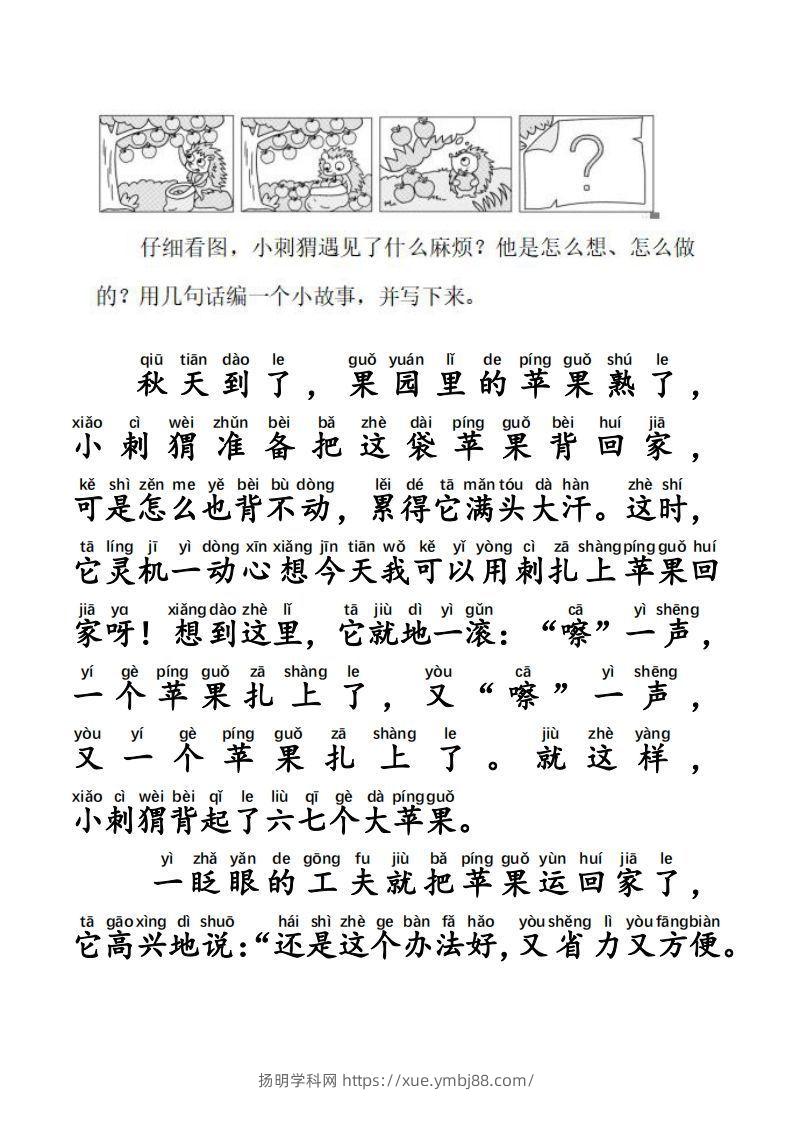 ?
仔细看图，小刺猬遇见了什么麻烦？他是怎么想、怎么做
的？用几句话编一个小故事，并写下来。
qiū tiān dào le guǒ yuán lǐ de píng guǒ shú le
秋天到了，果园里的苹果熟了，
xiǎo cì wèi zhǔn bèi bǎ zhè dài píng guǒ bèi huí jiā
小刺猬准备把这袋苹果背回家，
kě shì zěn me yě bèi bù dòng lěi dé tā mǎn tóu dà hàn zhè shí
可是怎么也背不动，累得它满头大汗。这时，
tā líng jī yì dòng xīn xiǎng jīn tiān wǒ kě yǐ yòng cì zā shàng píng guǒ huí
它灵机一动心想今天我可以用刺扎上苹果回
jiā ya xiǎng dào zhè lǐ tā jiù dì yì gǔn cā yì shēng
家呀！想到这里，它就地一滚：“嚓”一声，
yí gè píng guǒ zā shàng le yòu cā yì shēng
一个苹果扎上了，又“嚓”一声，
yòu yí gè píng guǒ zā shàng le jiù zhè yàng
又一个苹果扎上了。就这样，
xiǎo cì wèi bèi qǐ le liù qī gè dà píng guǒ
小刺猬背起了六七个大苹果。
yì zhǎ yǎn de gōng fu jiù bǎ píng guǒ yùn huí jiā le
一眨眼的工夫就把苹果运回家了，
tā gāo xìng dì shuō hái shì zhè ge bàn fǎ hǎo yòu shěng lì yòu fāng biàn
它高兴地说：“还是这个办法好，又省力又方便。
扬明学科网 https://xue.ymbj88.com/